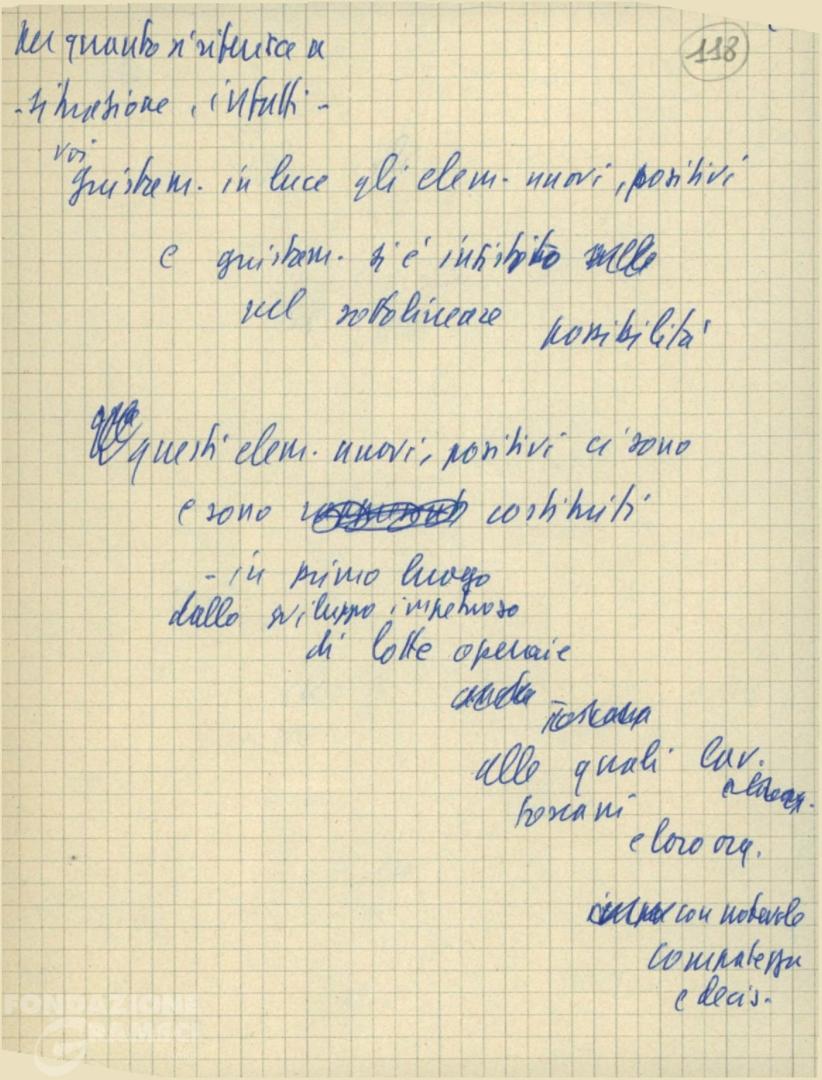 118
Per quanto si riferisce a
- situazione, infatti -
voi
giustam. in luce gli elem. nuovi, positivi
e giustam. si è insistito sulle
nel sottolineare possibilità
questi elem. nuovi, positivi ci sono
e sono costituiti
- in primo luogo
dallo sviluppo impetuoso
di lotte operaie
anche
Toscana
alle quali lav.
toscani
e loro org.
con notevole
compattezza
e decis.
FONDAZIONE
GRAMSCI